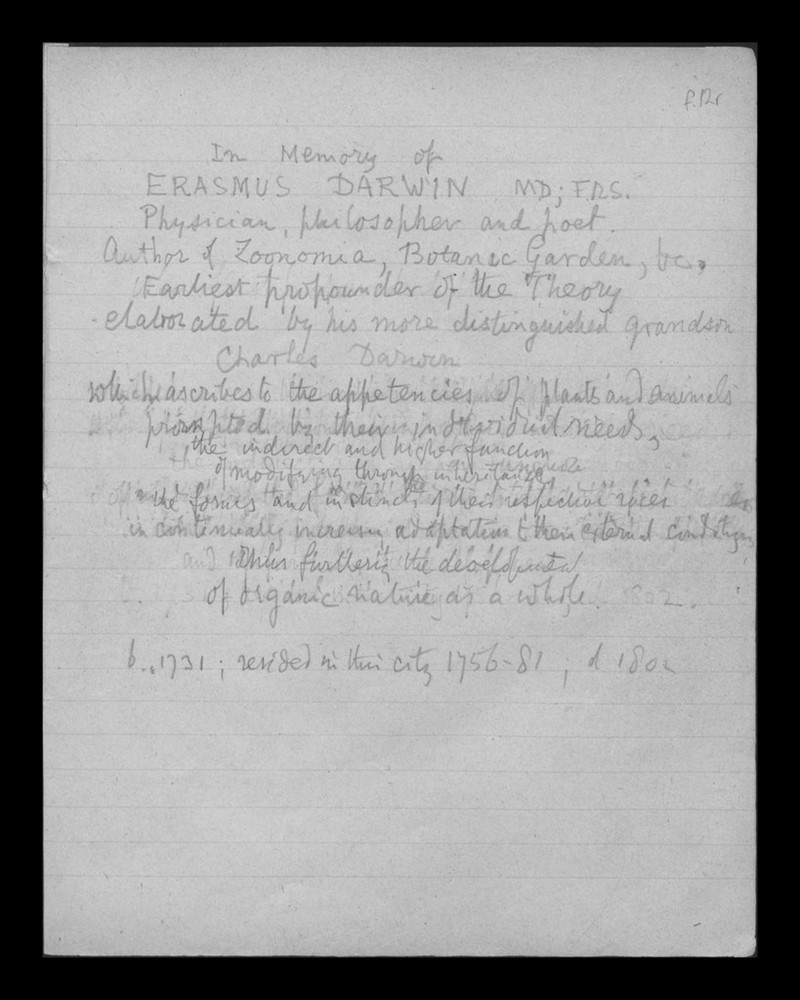 f.12r
In Memory of
ERASMUS DARWIN MD; F.R.S.
Physician, philosopher and poet.
Author of Zoonomia, Botanic Garden, &c.,
Earliest propounder of the Theory
elaborated by his more distinguished grandson
Charles Darwin
which ascribes to the appetencies of plants and animals
prompted by their individual needs,
the indirect and higher function
of modifying through inheritance
the forms and instincts of their respective races
in continually increasing adaptation to their external conditions
thus furthering the development
of organic nature as a whole. 1802.
b. 1731; resided in this city 1756-81; d 1802